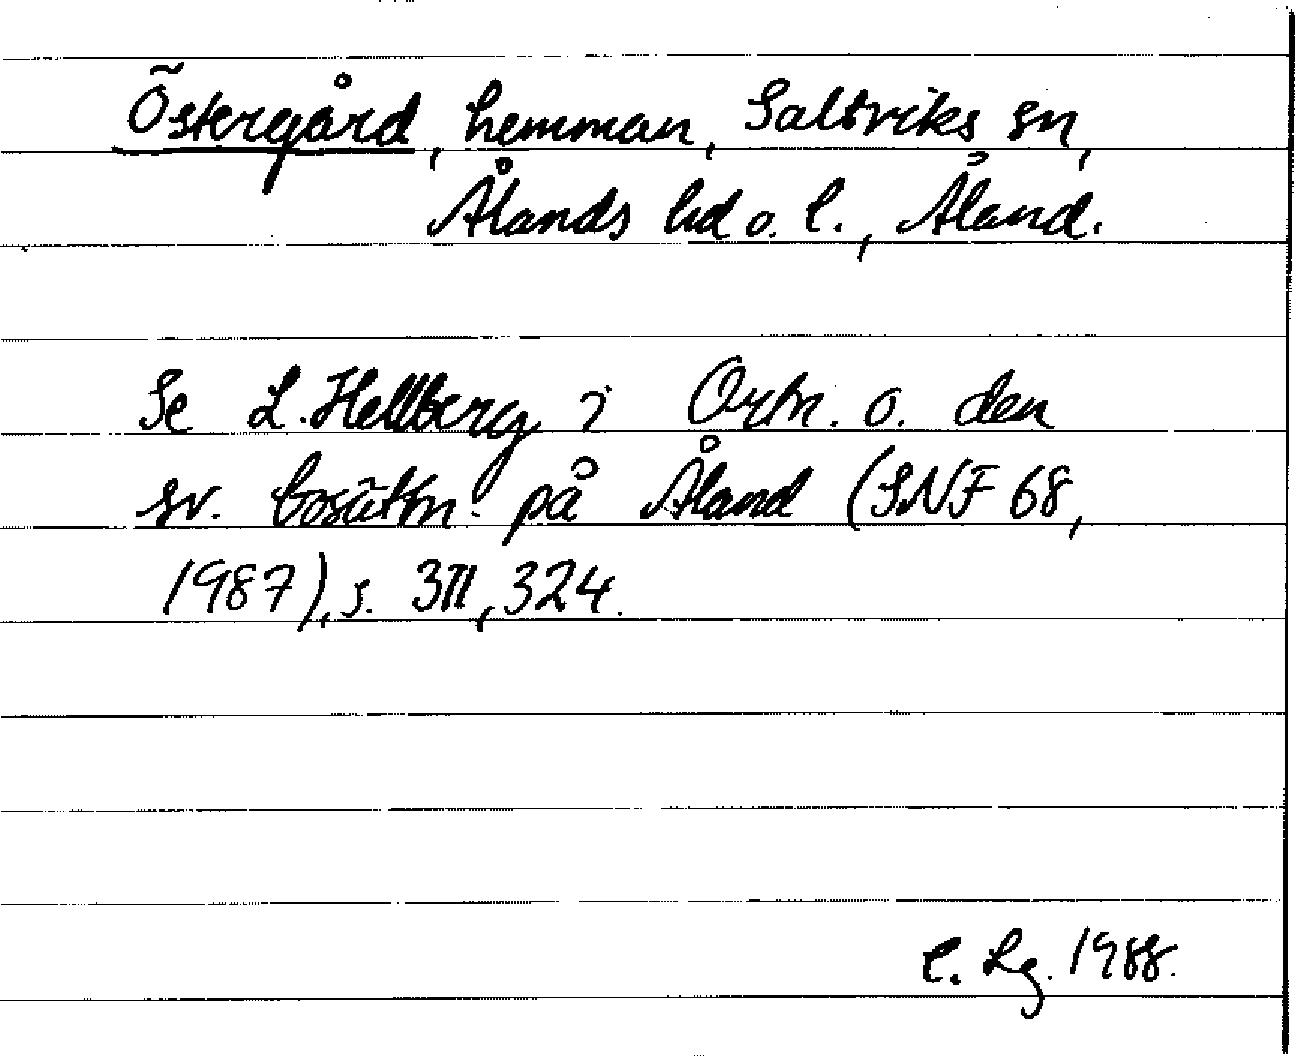 Östergård, hemman, Saltviks sn,
Ålands hd o. l., Åland.
Se L. Hellberg i Ortn. o. den
sv. bosättn. på Åland (SNF 68,
1987), s. 311, 324.
C. Lg. 1988.